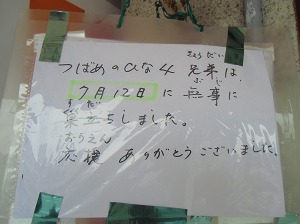 きょうだい
つばめのひな4兄弟は、
ぶじ
7月12日に無事に
すだ
巣立ちしました。
おうえん
応援 ありがとうございました。